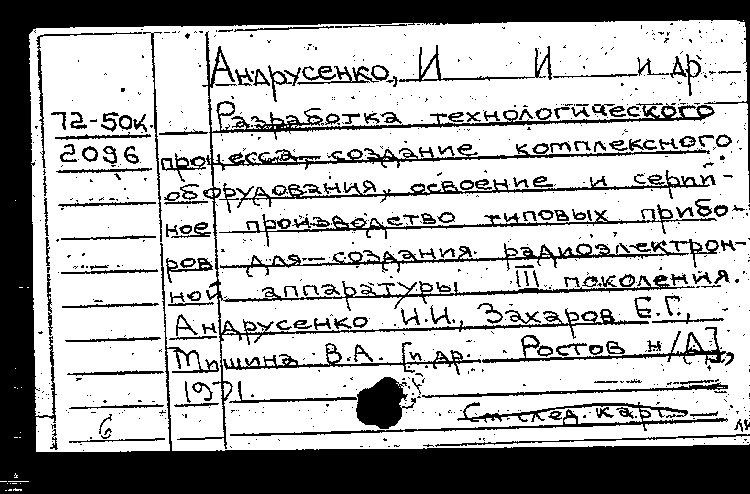 Андрусенко, И И и др.
72-50к.
2096
Разработка технологического
процесса, создание комплексного
оборудования, освоение и серий-
ное производство типовых прибо-
ров для создания радиоэлектрон-
ной аппаратуры III поколения.
Андрусенко И.И., Захаров Е.Г.,
Тишина В.А. [и др. Ростов н/Д],
1971.
См след. карт.
6